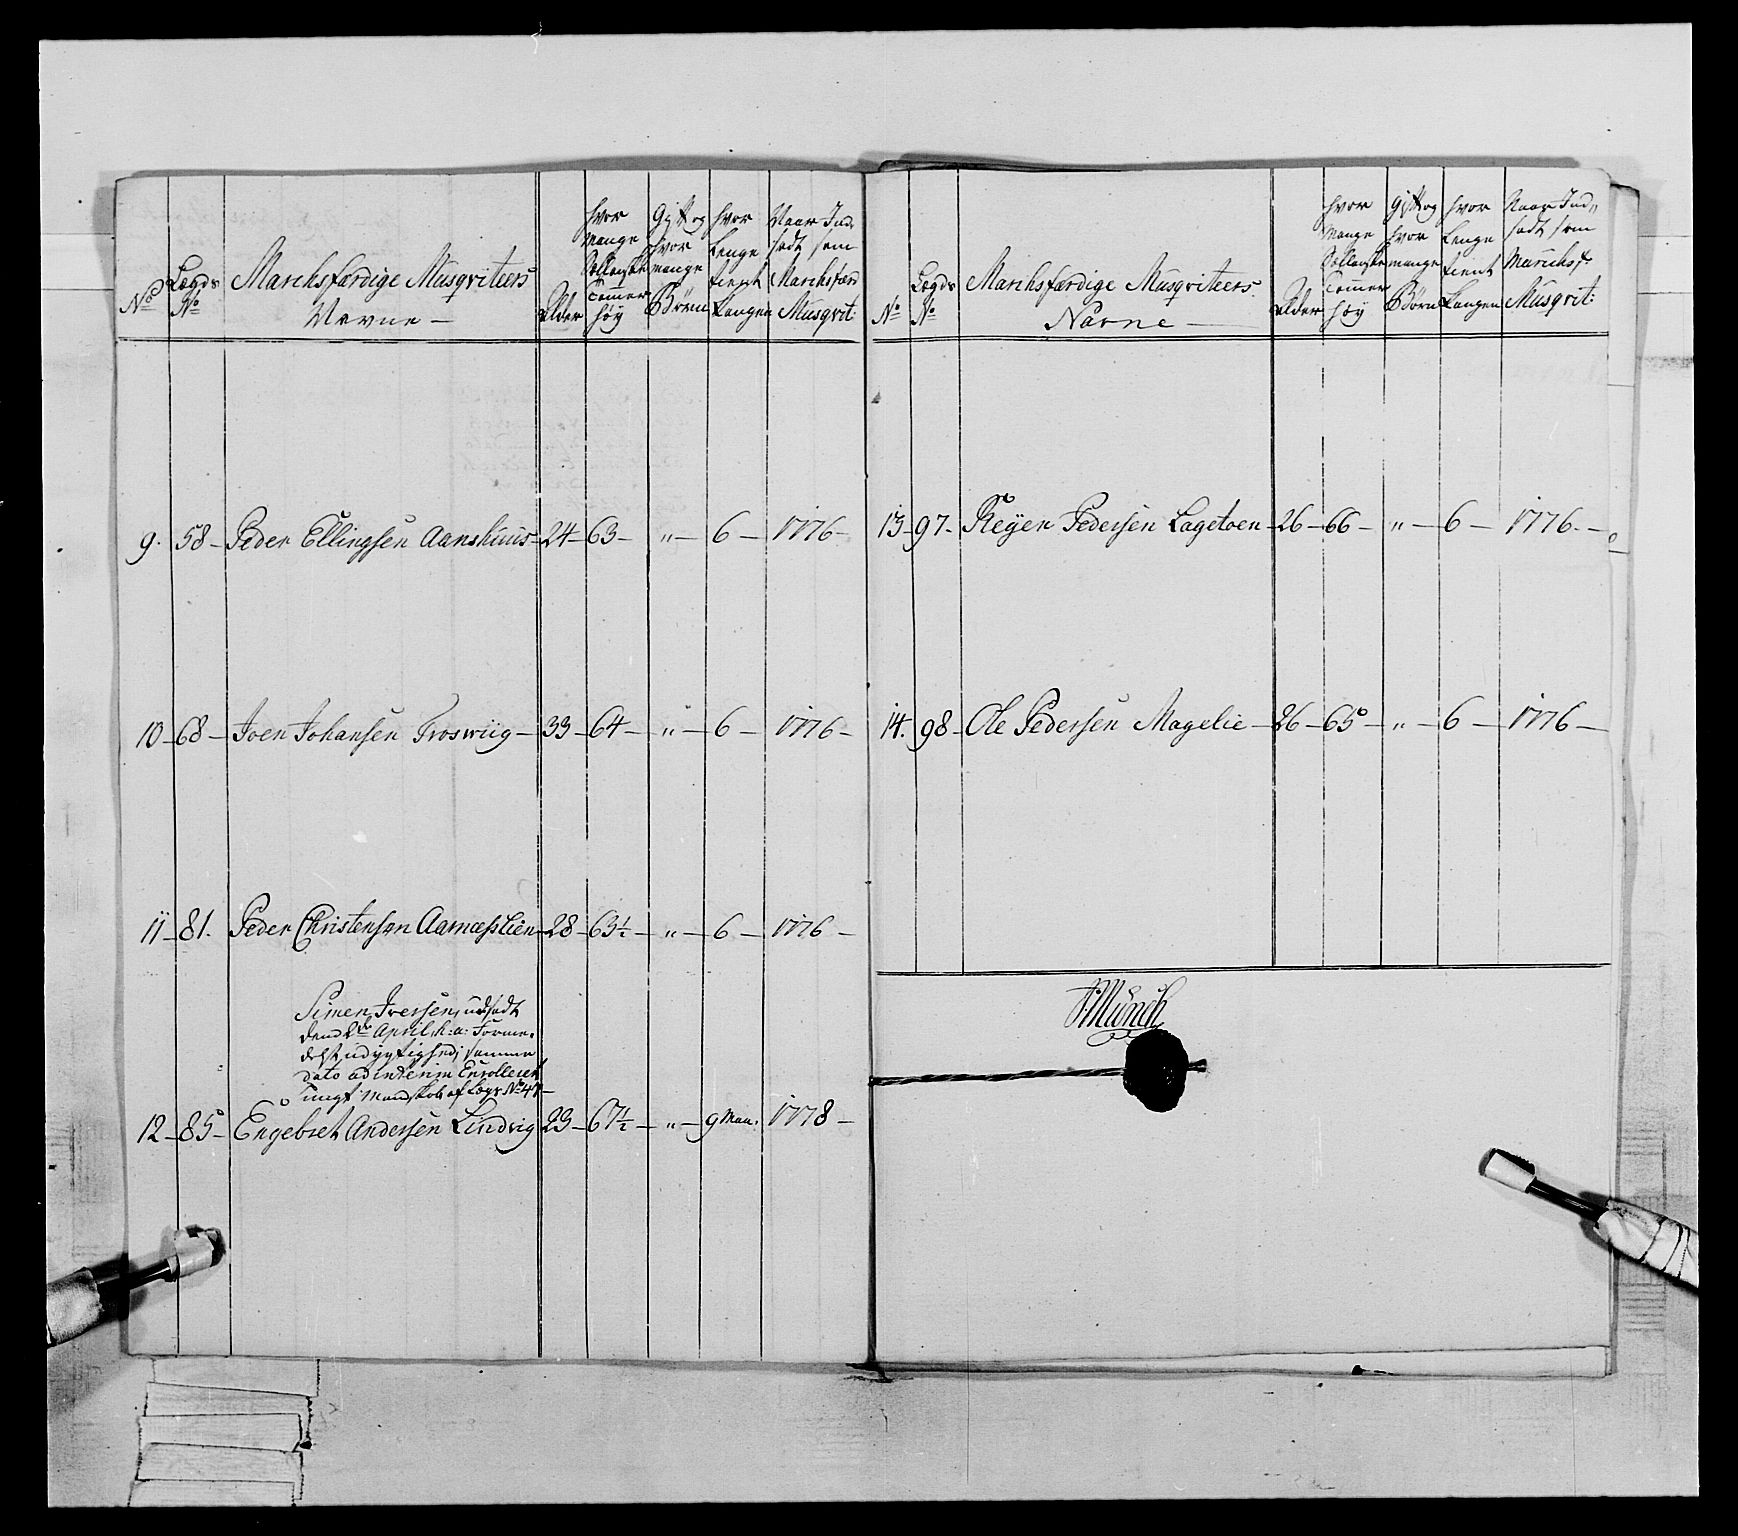 No
Lægds No
Marchsfærdige Musqviteers Navne —
Alder
hvor mange Sollanske Tommer høy
Gift og hvor mange Børn
hvor Lenge tient Kongen
Naar Ind sadt som Marchsfærd Musqvit:
9. 58 — Peder Ellingsen Aanshuus — 24 — 63 — „ — 6 — 1776 —
10 — 68 — Joen Johansen Troswiig — 33 — 64 — „ — 6 — 1776 —
11 — 81. Peder Christensen Aarnæsslien — 28 — 63½ — „ — 6 — 1776 —
Simen Iversen, udsadt
dend 2de April h: a: Forme-
delst udygtighed, samme
dato ad interim Enrolleret
ungt Mandskab af Lægd No 47 —
12 — 85 — Engebret Andersen Lindvig 23 — 67½ — „ — 9 Maan. 1778 —
No
Lægds No
Marchsfærdige Musqviteers Navne —
Alder
hvor mange Sollanske Tommer høy
Gift og hvor mange Børn
hvor Lenge tient Kongen
Naar Ind„ sadt som Marchsf: Musqvit:
13 — 97. Reyer Pedersen Lagetoen — 26 — 66 — „ — 6 — 1776. —
14. 98 — Ole Pedersen Magelie — 26 — 65 — „ — 6 — 1776 —
Münch